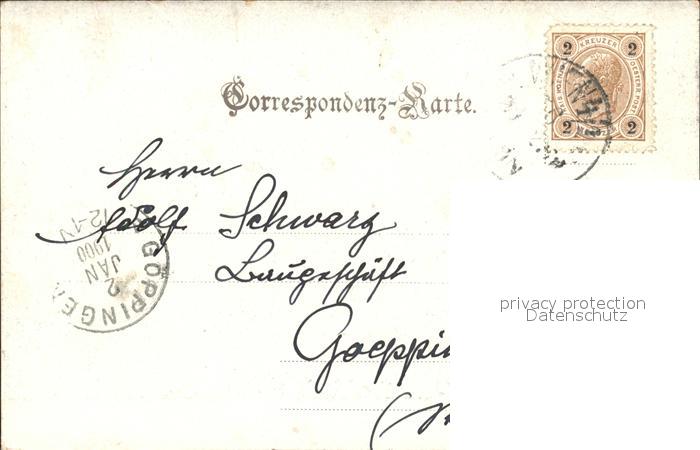 Correspondenz-Karte.
2 KREUZER 2
2 2
Herrn
Adolf Schwarz
Baugeschäft
Goeppin
(
GÖPPINGEN
2
JAN
1900
12-1N
privacy protection
Datenschutz